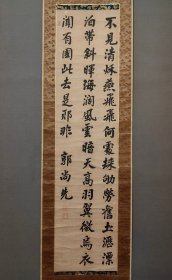 不見清秋燕飛飛何處歸劬勞舊土漂
泊帶斜暉海闊風雲暗天高羽翼微烏衣
聞有國此去是耶非 郭尚先